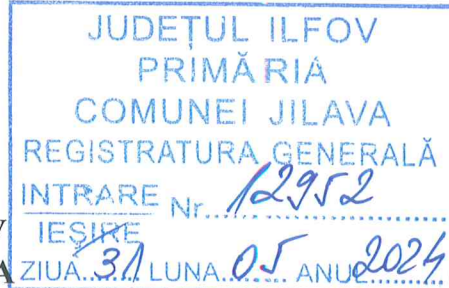 JUDEȚUL ILFOV
PRIMĂRIA
COMUNEI JILAVA
REGISTRATURA GENERALĂ
INTRARE Nr. 12952
IEȘIRE
ZIUA 31 LUNA 05 ANUL 2024